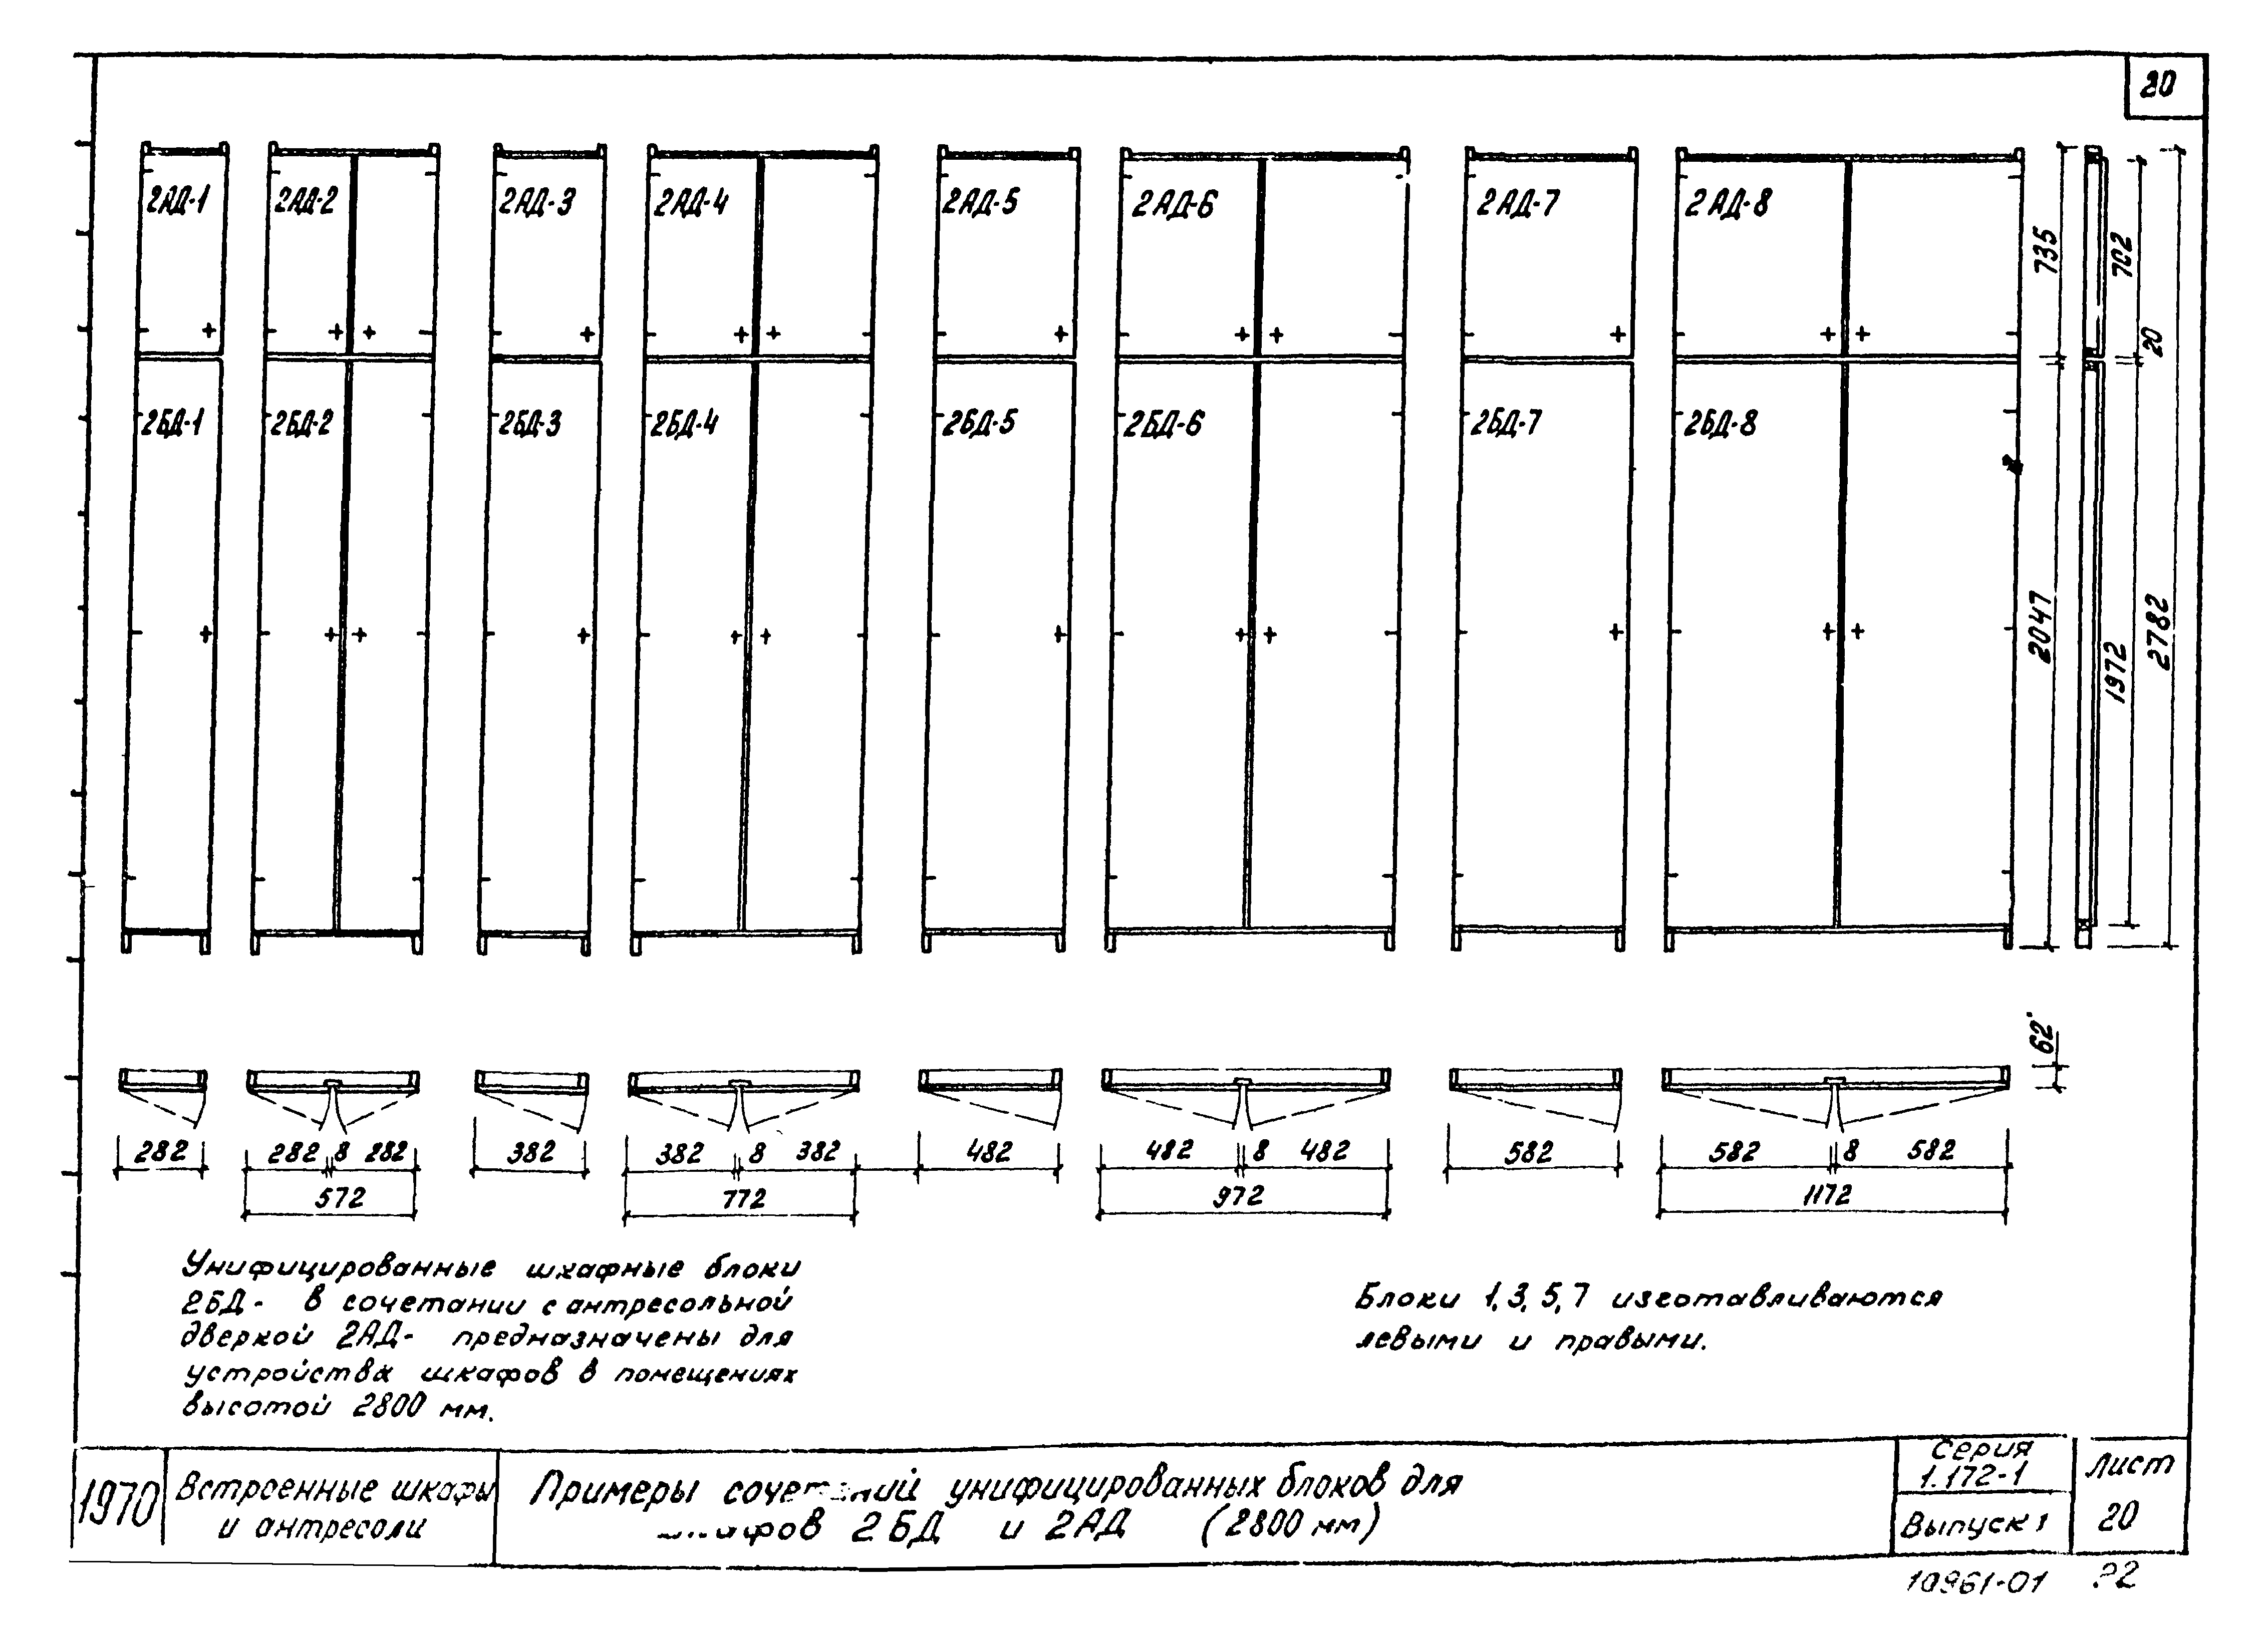 20
2АД-1
2АД-2
2АД-3
2АД-4
2АД-5
2АД-6
2АД-7
2АД-8
735
702
20
2БД-1
2БД-2
2БД-3
2БД-4
2БД-5
2БД-6
2БД-7
2БД-8
2047
1972
2782
62
282
282 8 282
382
382 8 382
482
482 8 482
582
582 8 582
572
772
972
1172
Унифицированные шкафные блоки
2БД- в сочетании с антресольной
дверкой 2АД- предназначены для
устройства шкафов в помещениях
высотой 2800 мм.
Блоки 1, 3, 5, 7 изготавливаются
левыми и правыми.
1970
Встроенные шкафы
и антресоли
Примеры сочетаний унифицированных блоков для
шкафов 2БД и 2АД (2800 мм)
Серия
1.172-1
Выпуск 1
Лист
20
10961-01